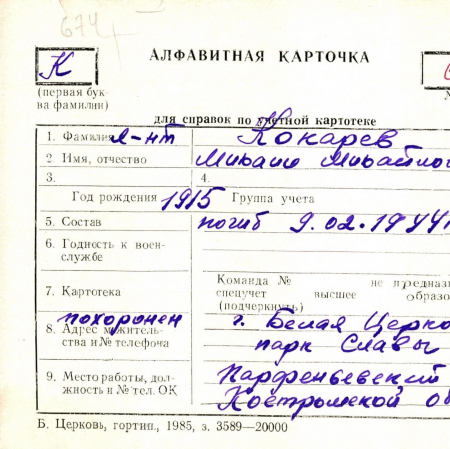 674
АЛФАВИТНАЯ КАРТОЧКА
К
(первая бук-
ва фамилии)
для справок по учетной картотеке
1. Фамилия л-нт Кокарев
2. Имя, отчество Михаил Михайло
3. 4.
Год рождения 1915 Группа учета
5. Состав погиб 9.02.1944
6. Годность к воен-
службе
7. Картотека
Команда № не предназ
спецучет высшее образо
(подчеркнуть)
похоронен г. Белая Церко
8. Адрес житель-
ства и № телефона парк Славы
9. Место работы, дол- Парфеньевский
жность и № тел. ОК Костромской об
Б. Церковь, гортип., 1985, з. 3589—20000